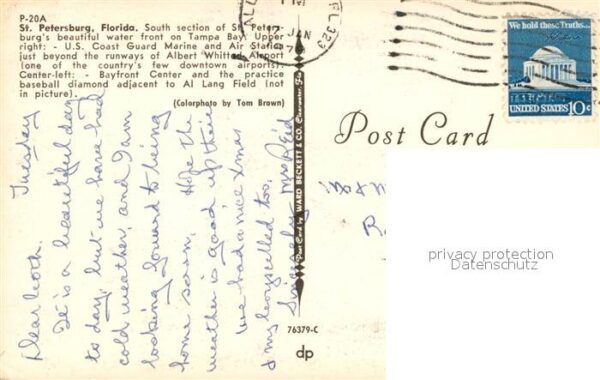 P-20A
St. Petersburg, Florida. South section of St. Peters-
burg's beautiful water front on Tampa Bay. Upper
right: - U.S. Coast Guard Marine and Air Station
just beyond the runways of Albert Whitted Airport
(one of the country's few downtown airports).
Center-left: - Bayfront Center and the practice
baseball diamond adjacent to Al Lang Field (not
in picture).
(Colorphoto by Tom Brown)
Tuesday
Dear both.
It is a beautiful day
to day, but we have had
cold weather, and I am
looking forward to being
home soon. Hope the
weather is good up there
We had a nice Xmas
& my boys called too.
Sincerely Mrs Reid
Post Card by WARD BECKETT & CO., Clearwater, Fla.
76379-C
dp
Post Card
JAN
We hold these Truths...
UNITED STATES 10c
privacy protection
Datenschutz